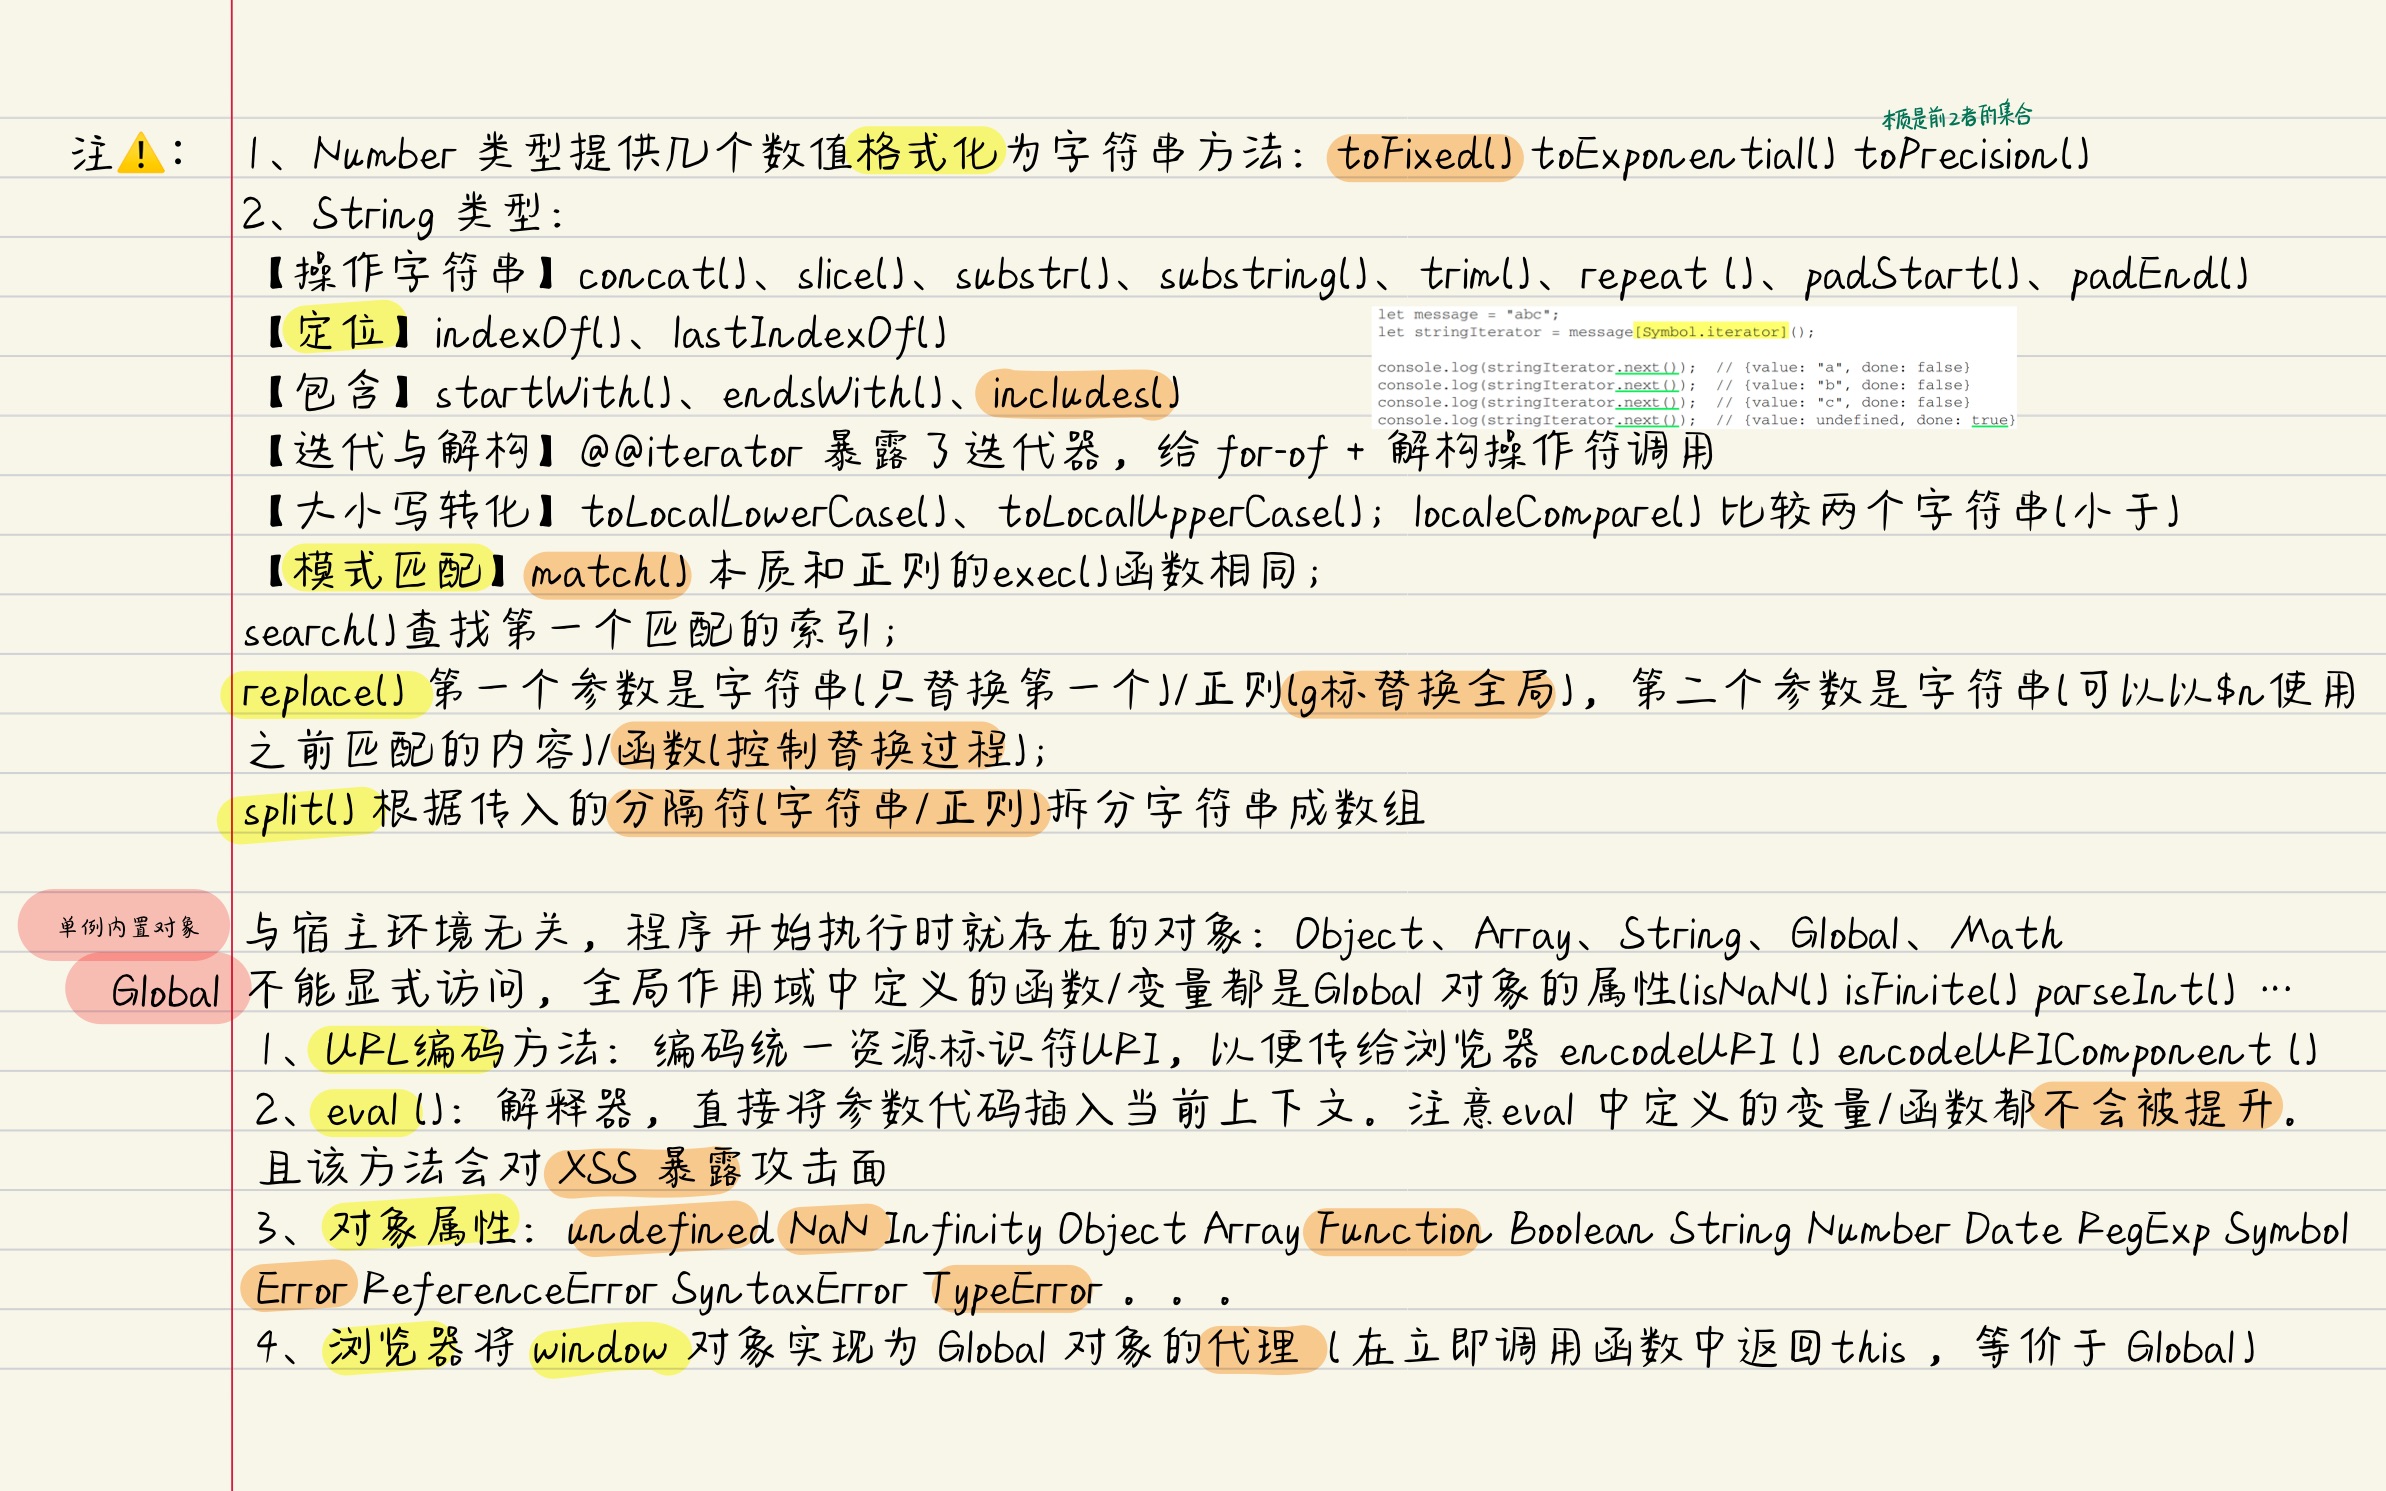 本质是前2者的集合
注⚠️： 1、Number 类型提供几个数值格式化为字符串方法：toFixed() toExponential() toPrecision()
2、String 类型：
【操作字符串】concat()、slice()、substr()、substring()、trim()、repeat ()、padStart()、padEnd()
【定位】indexOf()、lastIndexOf()
let message = "abc";
let stringIterator = message[Symbol.iterator]();
console.log(stringIterator.next()); // {value: "a", done: false}
console.log(stringIterator.next()); // {value: "b", done: false}
console.log(stringIterator.next()); // {value: "c", done: false}
console.log(stringIterator.next()); // {value: undefined, done: true}
【包含】startWith()、endsWith()、includes()
【迭代与解构】@@iterator 暴露了迭代器，给 for-of + 解构操作符调用
【大小写转化】toLocalLowerCase()、toLocalUpperCase()；localeCompare() 比较两个字符串(小于)
【模式匹配】match() 本质和正则的exec()函数相同；
search()查找第一个匹配的索引；
replace() 第一个参数是字符串(只替换第一个)/正则(g标替换全局)，第二个参数是字符串(可以以$n使用
之前匹配的内容)/函数(控制替换过程)；
split() 根据传入的分隔符(字符串/正则)拆分字符串成数组
单例内置对象 与宿主环境无关，程序开始执行时就存在的对象：Object、Array、String、Global、Math
Global 不能显式访问，全局作用域中定义的函数/变量都是Global 对象的属性(isNaN() isFinite() parseInt() …
1、URL编码方法：编码统一资源标识符URI，以便传给浏览器 encodeURI () encodeURIComponent ()
2、eval ()：解释器，直接将参数代码插入当前上下文。注意eval 中定义的变量/函数都不会被提升。
且该方法会对 XSS 暴露攻击面
3、对象属性：undefined NaN Infinity Object Array Function Boolean String Number Date RegExp Symbol
Error ReferenceError SyntaxError TypeError . . .
4、浏览器将 window 对象实现为 Global 对象的代理 (在立即调用函数中返回this ，等价于 Global)